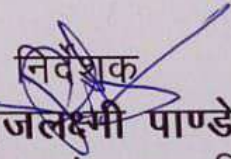 निर्देशक
जलक्ष्मी पाण्डे